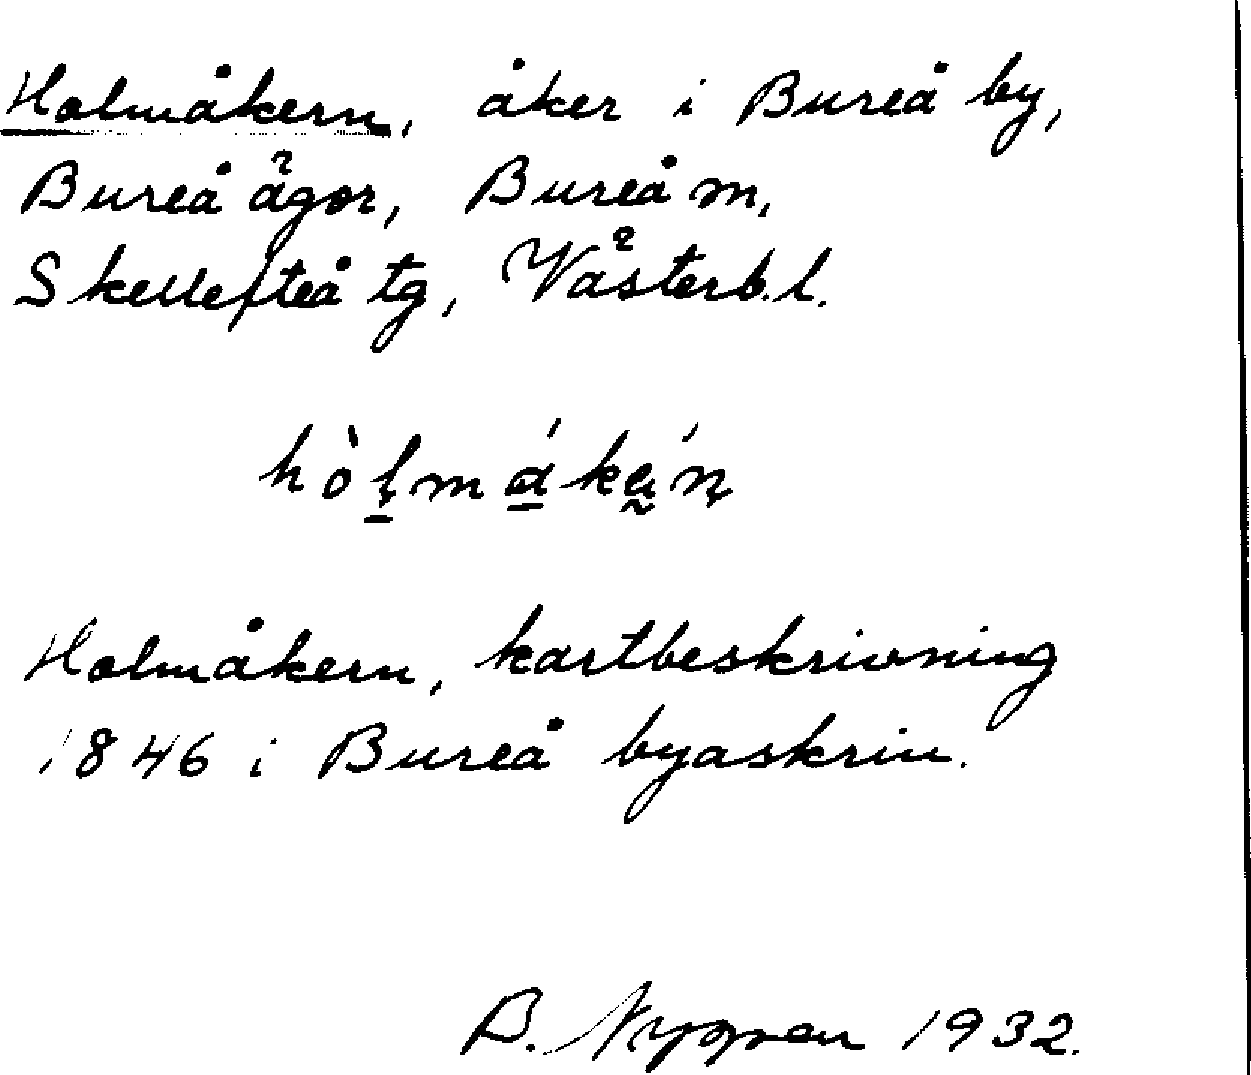 Holmåkern, åker i Bureå by,
Bureå ägor, Bureå m,
Skellefteå tg, Västerb.l.
Holmåkern, kartbeskrivning
1846 i Bureå byaskrin.
B. Nygren 1932.